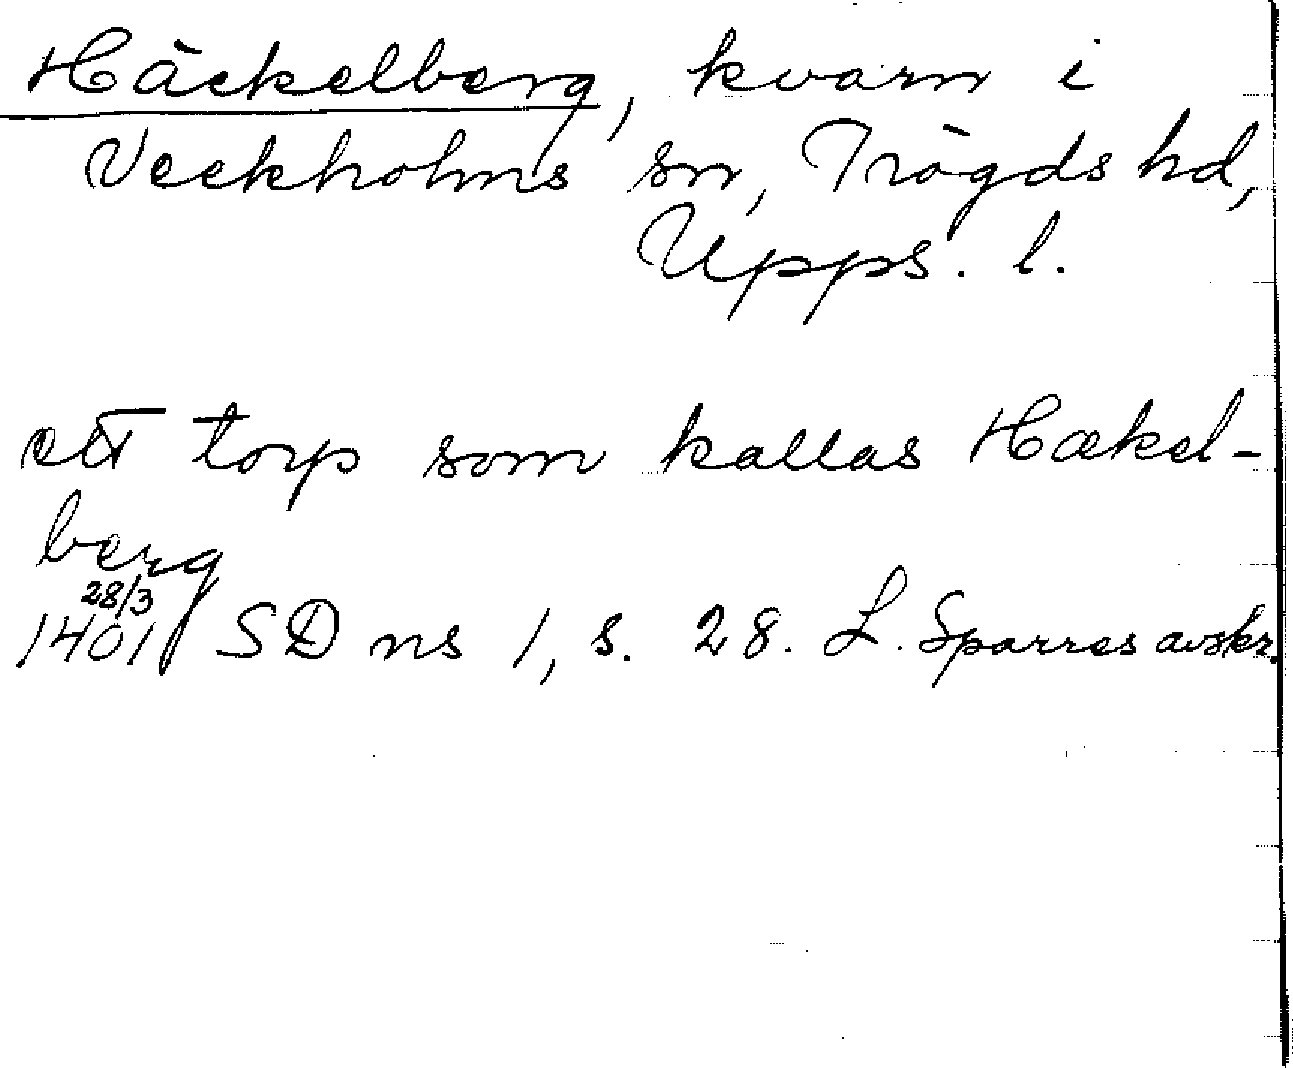 Häckelberg, kvarn i
Veckholms sn, Trögds hd,
Upps. l.
ett torp som kallas Hækel-
berg
28/3
1401 SD ns 1, s. 28. L. Sparres avskr.